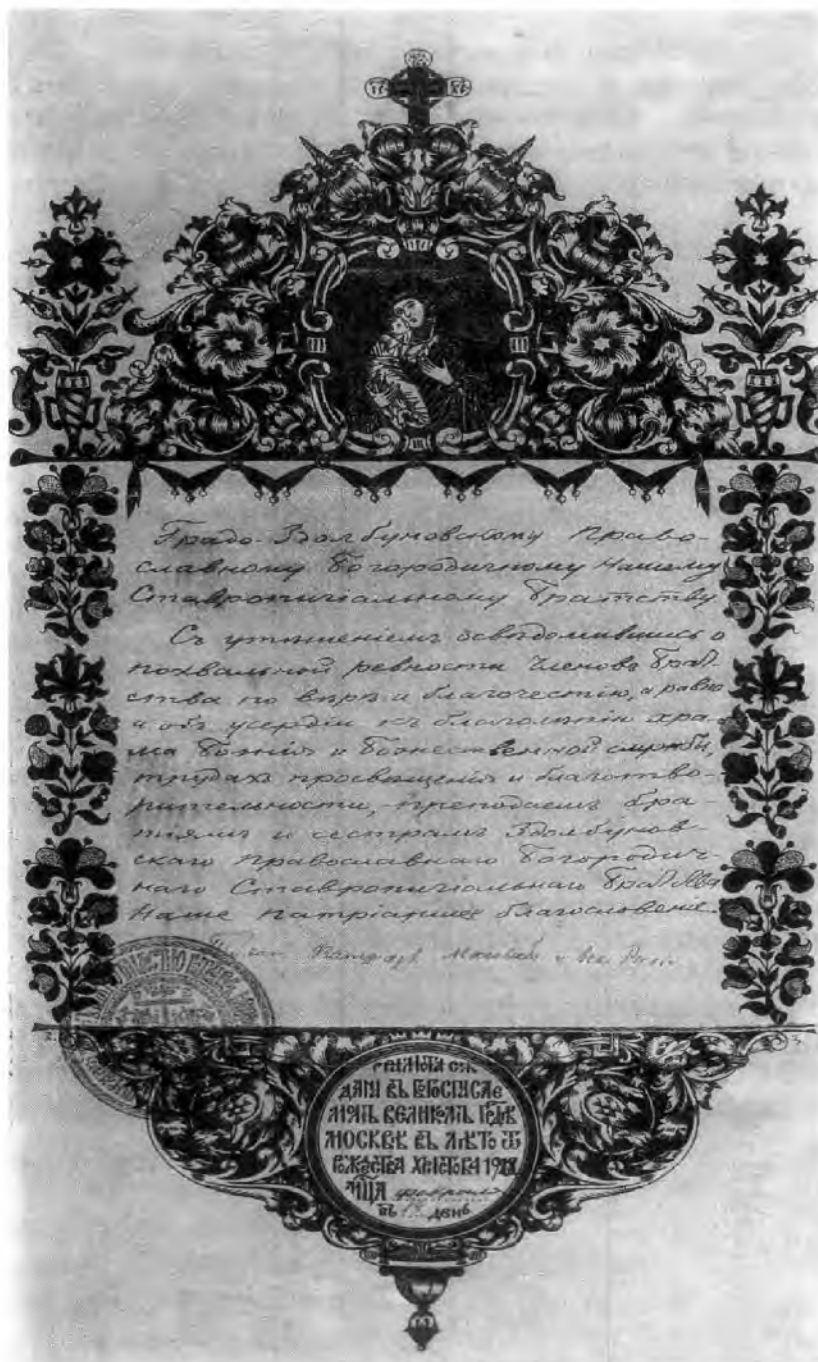 Градо-Здолбуновскому Право-
славному Богородичному Нашему
Ставропигіальному Братству
Съ утѣшеніемъ освѣдомившись о
похвальной ревности членовъ Брат-
ства по вѣрѣ и благочестію, а равно
и объ усердіи къ благолѣпію хра-
ма Божія и Божественной службы,
трудахъ просвѣщенія и благотво-
рительности, преподаемъ бра-
тіямъ и сестрамъ Здолбунов-
скаго Православнаго Богородич-
наго Ставропигіальнаго Братства
Наше патріаршее благословеніе.
Тихон Патріархъ Московскій и всея Россіи
ГРАМОТА СІѦ
ДАНА ВЪ БГОСПАСАЕ
МОМЪ ВЕЛИКОМЪ ГРАДѢ
МОСКВѢ ВЪ ЛѢТО Ѿ
РОЖДЕСТВА ХРИСТОВА 19
МЦА февраля
ВЪ ДЕНЬ